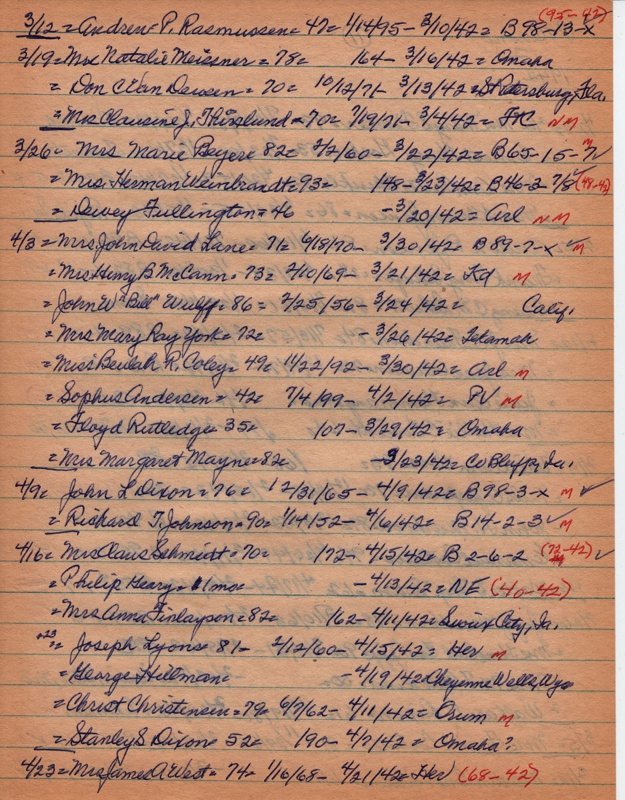 (95-42)
3/12 = Andrew P. Rasmussen = 47 = 1/14/95 - 3/10/42 = B 98-13-X
3/19 = Mrs Natalie Meissner = 78 = 164 - 3/16/42 = Omaha
= Don C Van Deusen = 70 = 10/12/71 - 3/13/42 = St Petersburg, Fla.
= Mrs Clausine J. = 70 = 7/19/71 - 3/4/42 = FK NM
3/26 = Mrs Marie Beyer = 82 = 2/2/60 - 3/22/42 = B65-15-7 ✓ M
= Mrs. Herman Weinbrandt = 93 = 148 - 3/23/42 = B46-2-7/8 (48-42)
= Dewey Fullington = 46 - 3/20/42 = Arl NM
4/3 = Mrs John David Lane = 71 = 6/18/70 - 3/30/42 = B 89-7-X ✓ M
= Mrs Henry B McCann = 73 = 2/10/69 - 3/21/42 = Kd M
= John W "Bill" Wulff = 86 = 2/25/56 - 3/24/42 = Calif.
= Mrs Mary Ray York = 72 = - 3/26/42 = Tekamah
= Miss Beulah R. Coley = 49 = 11/22/92 - 3/30/42 = Arl M
= Sophus Andersen = 42 = 7/4/99 - 4/2/42 = PV M
= Floyd Rutledge = 35 = 107 - 3/29/42 = Omaha
= Mrs Margaret Mayne = 82 = - 3/23/42 = Co Bluffs, Ia.
4/9 = John L Dixon = 76 = 12/31/65 - 4/9/42 = B98-3-X M ✓
= Richard T. Johnson = 90 = 1/14/52 - 4/6/42 = B14-2-3 ✓ M
4/16 = Mrs Claus Schmidt = 70 = 172 - 4/15/42 = B 2-6-2 (72-42) ✓
= Philip Geary = 11 mo = - 4/13/42 = NE (40-42)
= Mrs Anna Finlayson = 82 = 162 - 4/11/42 = Sioux City, Ia.
+23 = Joseph Lyons = 81 - 2/12/60 - 4/15/42 = Her M
= George Hillman = - 4/19/42 Cheyenne Wells, Wyo
= Christ Christensen = 79 = 6/7/62 - 4/11/42 = Orum M
= Stanley S Dixon = 52 = 190 - 4/7/42 = Omaha?
4/23 = Mrs James A West = 74 = 1/16/68 - 4/21/42 = Her (68-42)